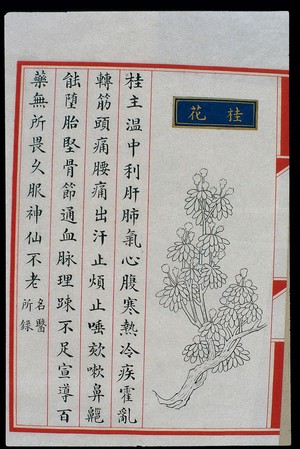 桂花
桂主溫中利肝肺氣心腹寒熱冷疾霍亂
轉筋頭痛腰痛出汗止煩止唾欬嗽鼻齆
䏻墮胎堅骨節通血脈理踈不足宣導百
藥無所畏乆服神仙不老
名醫
所錄